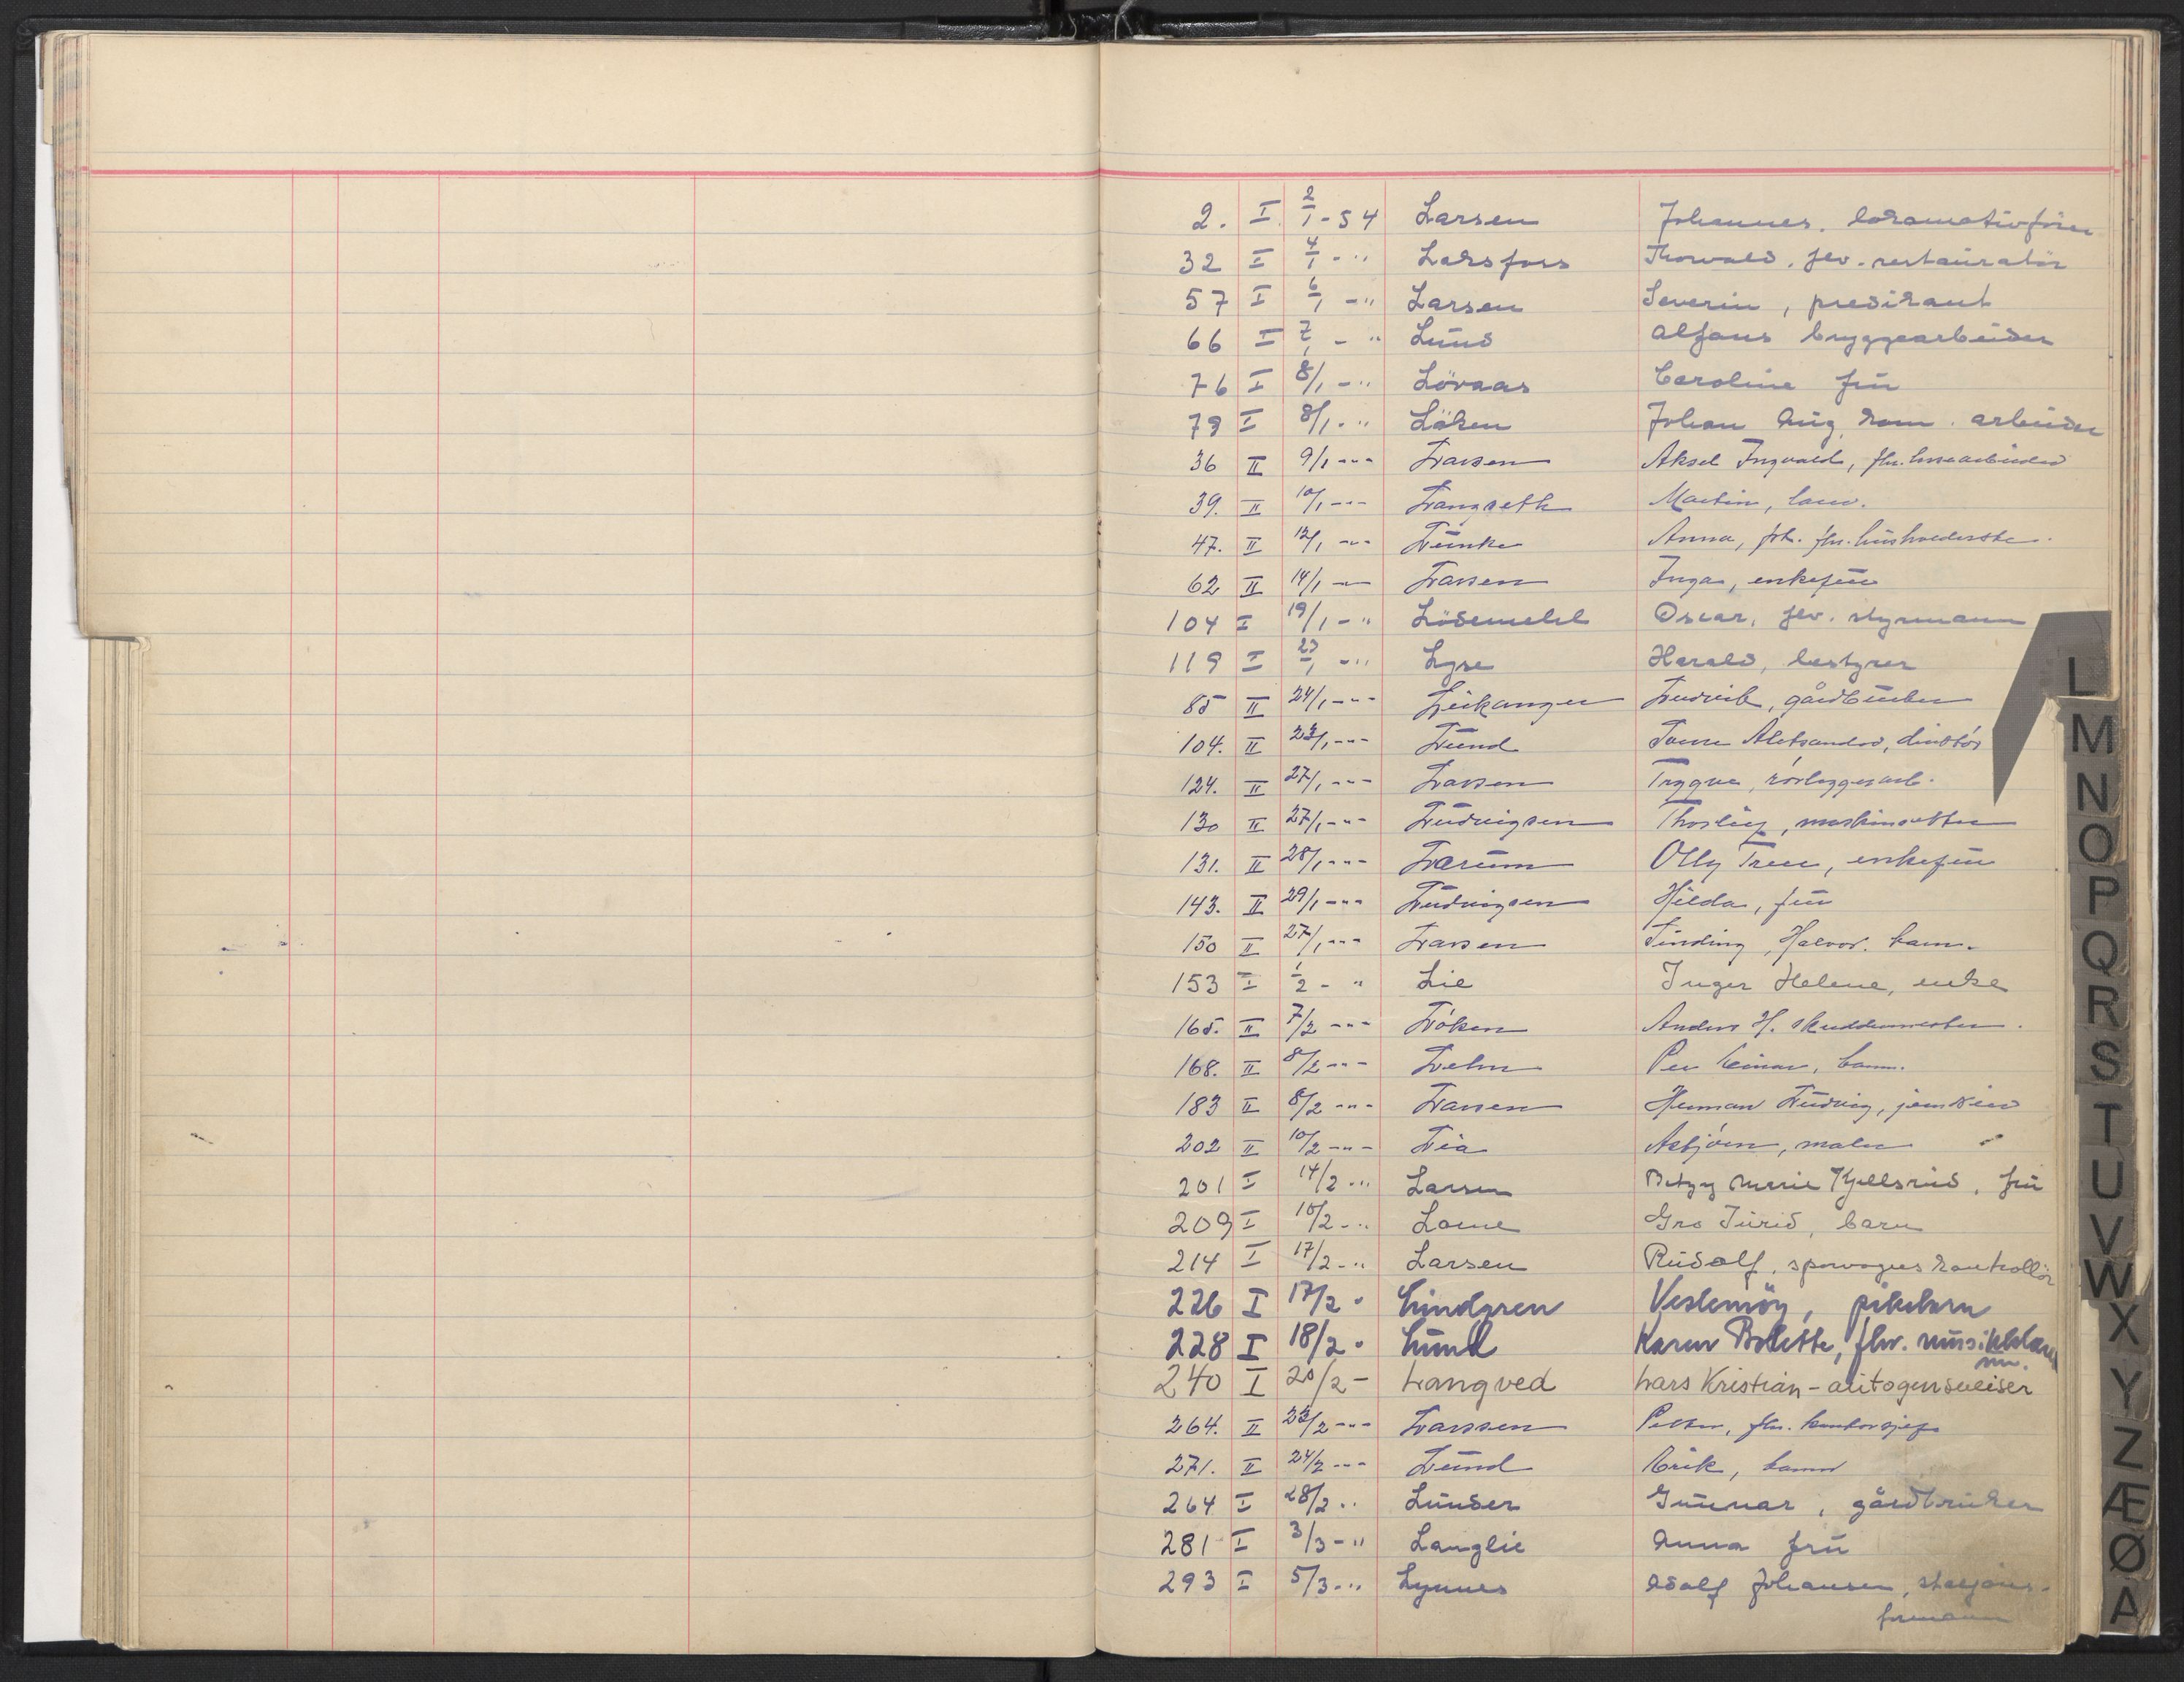 2. I 2/1-54 Larsen Johannes. lokomotivfører
32 I 4/1 - " Laksfoss Thorvald. fhv. restauratör
57 I 6/1 - " Larsen Severin, predikant
66 I 7/1 - " Lund Alfons bryggearbeider
76 I 8/1 - " Lövaas Caroline frü
79 I 8/1 - " Löken Johan Aug. kom. arbeider
36 II 9/1 - " - Larsen Aksel Ingvald,
39. II 10/1 - " - Langseth Martin,
47. II 12/1 - " - Lünke Anna, frk. fhv. hüsholderske.
62 II 14/1 - " - Larsen Inga, enkefrü
104 I 19/1 - " Lödemehl Oscar, fhv. styrmann
119 I 23/1 - " Lyse Harald, bestyrer
85 II 24/1 - " - Leikanger gårdbrüker
104. II 23/1 - " - Lünd
124. II 27/1 - " - Larsen Trygve, rörleggerarb.
130 II 27/1 - " - Lüdvigsen maskinsetter
131. II 28/1 - " - Lærüm Olly enkefrü
143. II 29/1 - " - Lüdvigsen Hilda, frü
150 II 27/1 - " - Larsen Tinding, Halvor. barn.
153 I 1/2 - " Lie Inger Helene, enke
165. II 7/2 - " - Löken Anders H. skreddermester.
168. II 8/2 - " - Lehn Per Einar, barn.
183 II 8/2 - " - Larsen Herman Lüdvig,
202 II 10/2 - " - Lia Asbjörn, maler
201 I 14/2 - " Larsen Betzy Marie Kjellsrüd, frü
209 I 16/2 - " Lome Gro Türid, barn
214 I 17/2 - " Larsen Rüdolf, sporvognskontrollör
226 I 17/2 " Lindgren Veslemöy, pikebarn
228 I 18/2 " Lünd Karen Bolette, fhv.
240 I 20/2 - Langved Lars Kristian - aütogensveiser
264. II 23/2 - " - Larssen Petter, fhv. kontorsjef
271. II 24/2 - " - Lünd Erik, barn
264 I 28/2 " Lünder Günnar, gårdbrüker
281 I 3/3 - " Langlie Anna frü
293 I 5/3 - " Lynnes Adolf Johansen, stasjons-
formann
L
M
N
O
P
Q
R
S
T
U
V
W
X
Y
Z
Æ
Ø
A